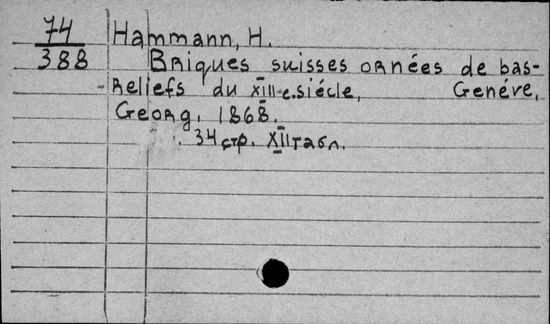 74 Hammann, H.
388 Briques suisses ornées de bas-
reliefs du XIII-e. siécle, Genéve,
Georg, 1868.
34 стр. XII табл.